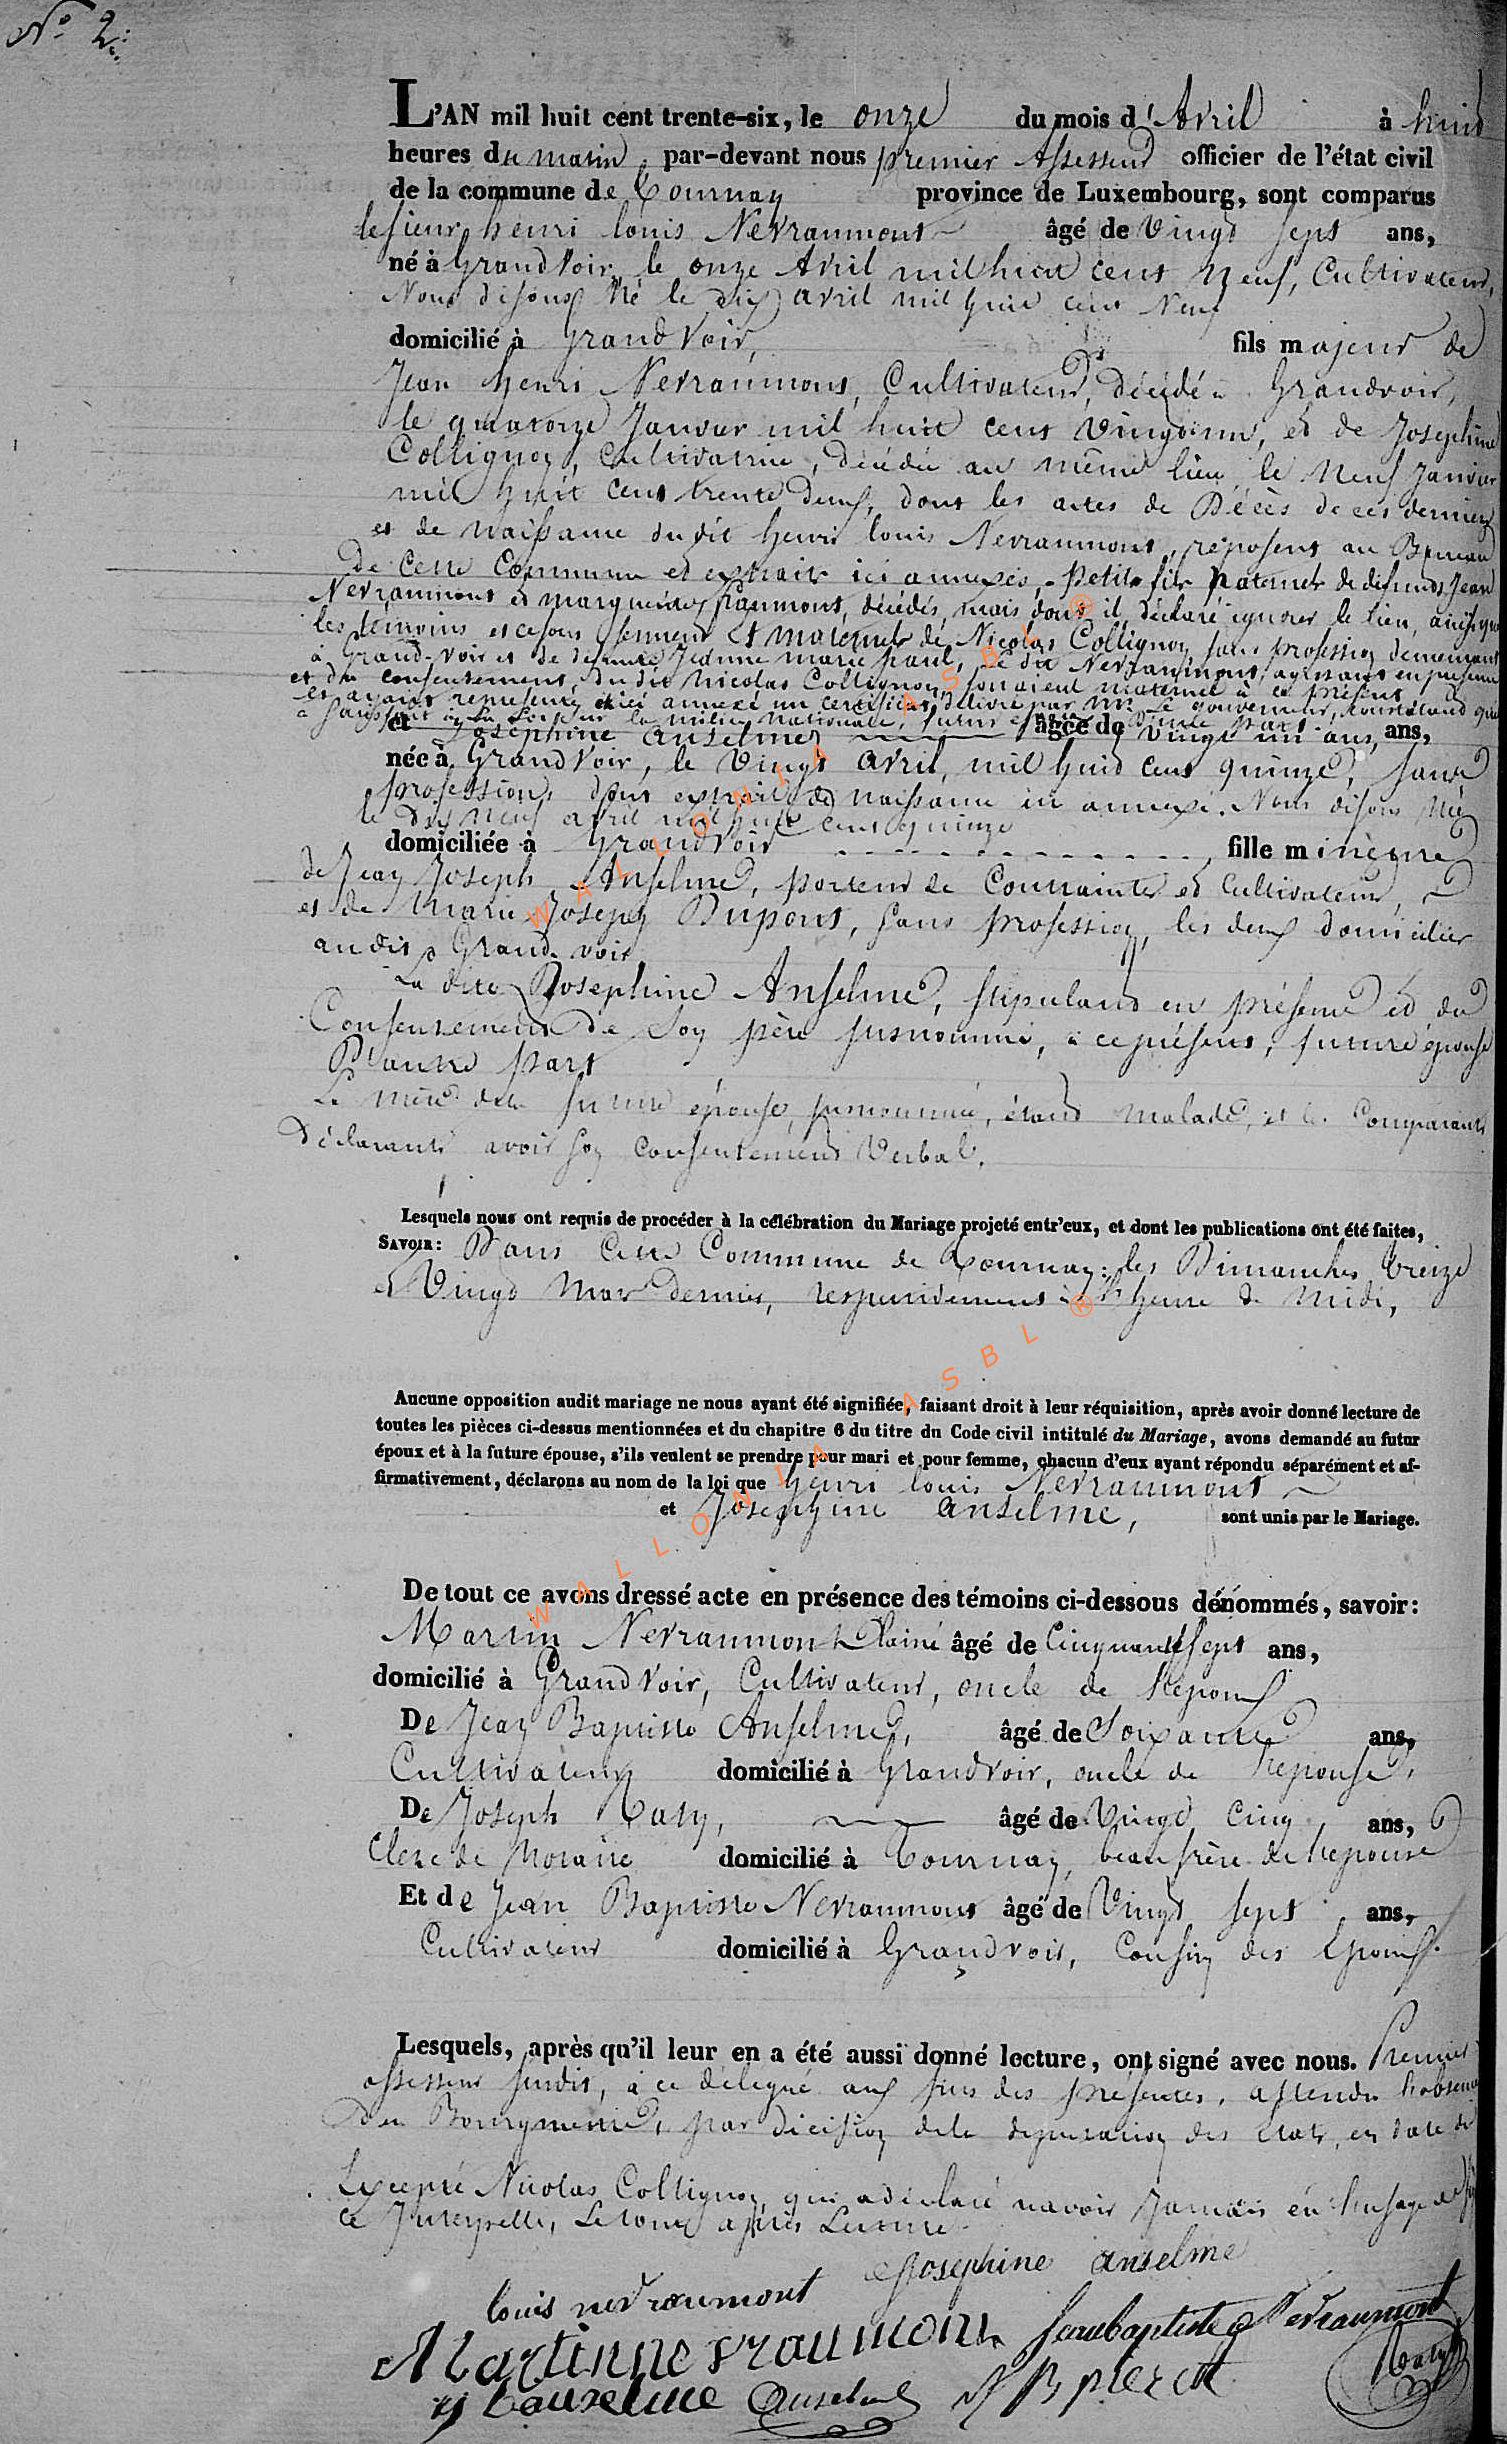 N° 2.
L'AN mil huit cent trente-six, le onze du mois d'Avril à huit
heures du matin, par-devant nous premier Assesseur officier de l'état civil
de la commune de Tournay province de Luxembourg, sont comparus
le sieur henri louis Nevraumont âgé de Vingt sept ans,
né à Grandvoir, le onze Avril mil huit cent neuf, Cultivateur,
Nous disons Né le dix avril mil huit cent Neuf
domicilié à Grandvoir, fils majeur de
Jean henri Nevraumont, Cultivateur, décédé à Grandvoir,
le quatorze Janvier mil huit cent Vingt , et de Josephine
Collignon, Cultivatrice, décédée au même lieu, le Neuf Janvier
mil huit cent trente deux, dont les actes de Décès de ces derniers
et de naissance du dit henri louis Nevraumont, reposent au Bureau
de cette Commune et extraits ici annexés, Petit fils paternel de defunts Jean
Nevraumont et Marguerite Paumont, décédés, mais dont il déclare ignorer le lieu, ainsi que
les témoins et ce sous serment Et maternels de Nicolas Collignon, sans profession demeurant
à Grand-Voir et de defunte Jeanne marie paul, Le dit Nevraumont, agissant en présence
et du consentement, du dit Nicolas Collignon, son aieul maternel à ce présent,
et ayant représenté et ici annexé un certificat, délivré par Mr Le gouverneur, constatant qu'il
a satisfait à la Loi sur la milice Nationale, futur époux D'une part
et Josephine Anselme âgée de Vingt un ans, ans,
née à Grandvoir, le Vingt avril, mil huit cent quinze, sans
profession, dont extrait de naissance ici annexé. Nous disons Née
le dix neuf avril mil huit cent quinze
domiciliée à Grandvoir , fille mineure
de Jean Joseph Anselme, porteur de Contrainte et Cultivateur,
et de Marie Joseph Dupont, sans profession, les deux domiciliés
audit Grand-voir
La dite Josephine Anselme, stipulant en présence et du
Consentement de Son père susnommé, à ce présent, future épouse
D'autre part
La mère de la future épouse, susnommée, étant malade, et les Comparants
Déclarants avoir son consentement Verbal.
Lesquels nous ont requis de procéder à la célébration du Mariage projeté entr'eux, et dont les publications ont été faites,
SAVOIR: Dans Cette Commune de Tournay: les Dimanches treize
et Vingt Mars dernier, respectivement à l'heure de Midi,
Aucune opposition audit mariage ne nous ayant été signifiée, faisant droit à leur réquisition, après avoir donné lecture de
toutes les pièces ci-dessus mentionnées et du chapitre 6 du titre du Code civil intitulé du Mariage, avons demandé au futur
époux et à la future épouse, s'ils veulent se prendre pour mari et pour femme, chacun d'eux ayant répondu séparément et af-
firmativement, déclarons au nom de la loi que henri louis Nevraumont
et Josephine Anselme, sont unis par le Mariage.
De tout ce avons dressé acte en présence des témoins ci-dessous dénommés, savoir:
Martin Nevraumont L'ainé âgé de Cinquante sept ans,
domicilié à Grandvoir, Cultivateur, oncle de l'epoux
De Jean Baptiste Anselme, âgé de Soixante ans,
Cultivateur domicilié à Grandvoir, oncle de l'epouse,
De Joseph , âgé de Vingt Cinq ans,
Clerc de Notaire domicilié à Tournay, beau frère de l'epouse
Et de Jean Baptiste Nevraumont âgé de Vingt sept ans,
Cultivateur domicilié à Grandvoir, Cousin des Epoux.
Lesquels, après qu'il leur en a été aussi donné lecture, ont signé avec nous. Premier
assesseur susdit, à ce délégué aux fins des présentes, attendu l'absence
du Bourgmestre, par décision de la députation des Etats, en date du
Excepté Nicolas Collignon, qui a déclaré n'avoir Jamais eu l'usage de
ce Interpellé, Le tout après Lecture.
Josephine anselme
louis nevraumont
Martin nevraumont Jean baptiste Nevraumont
anselme Anselme
WALLONIA ASBL ®
WALLONIA ASBL ®